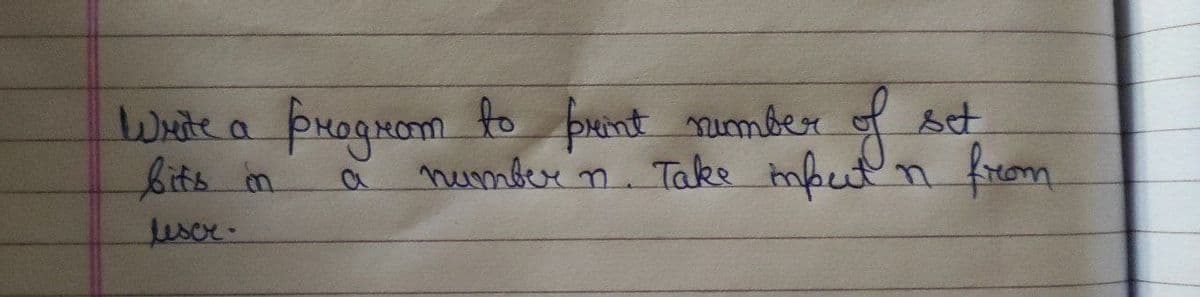 Write a program to print number of set
bits in a number n. Take input n from
user.